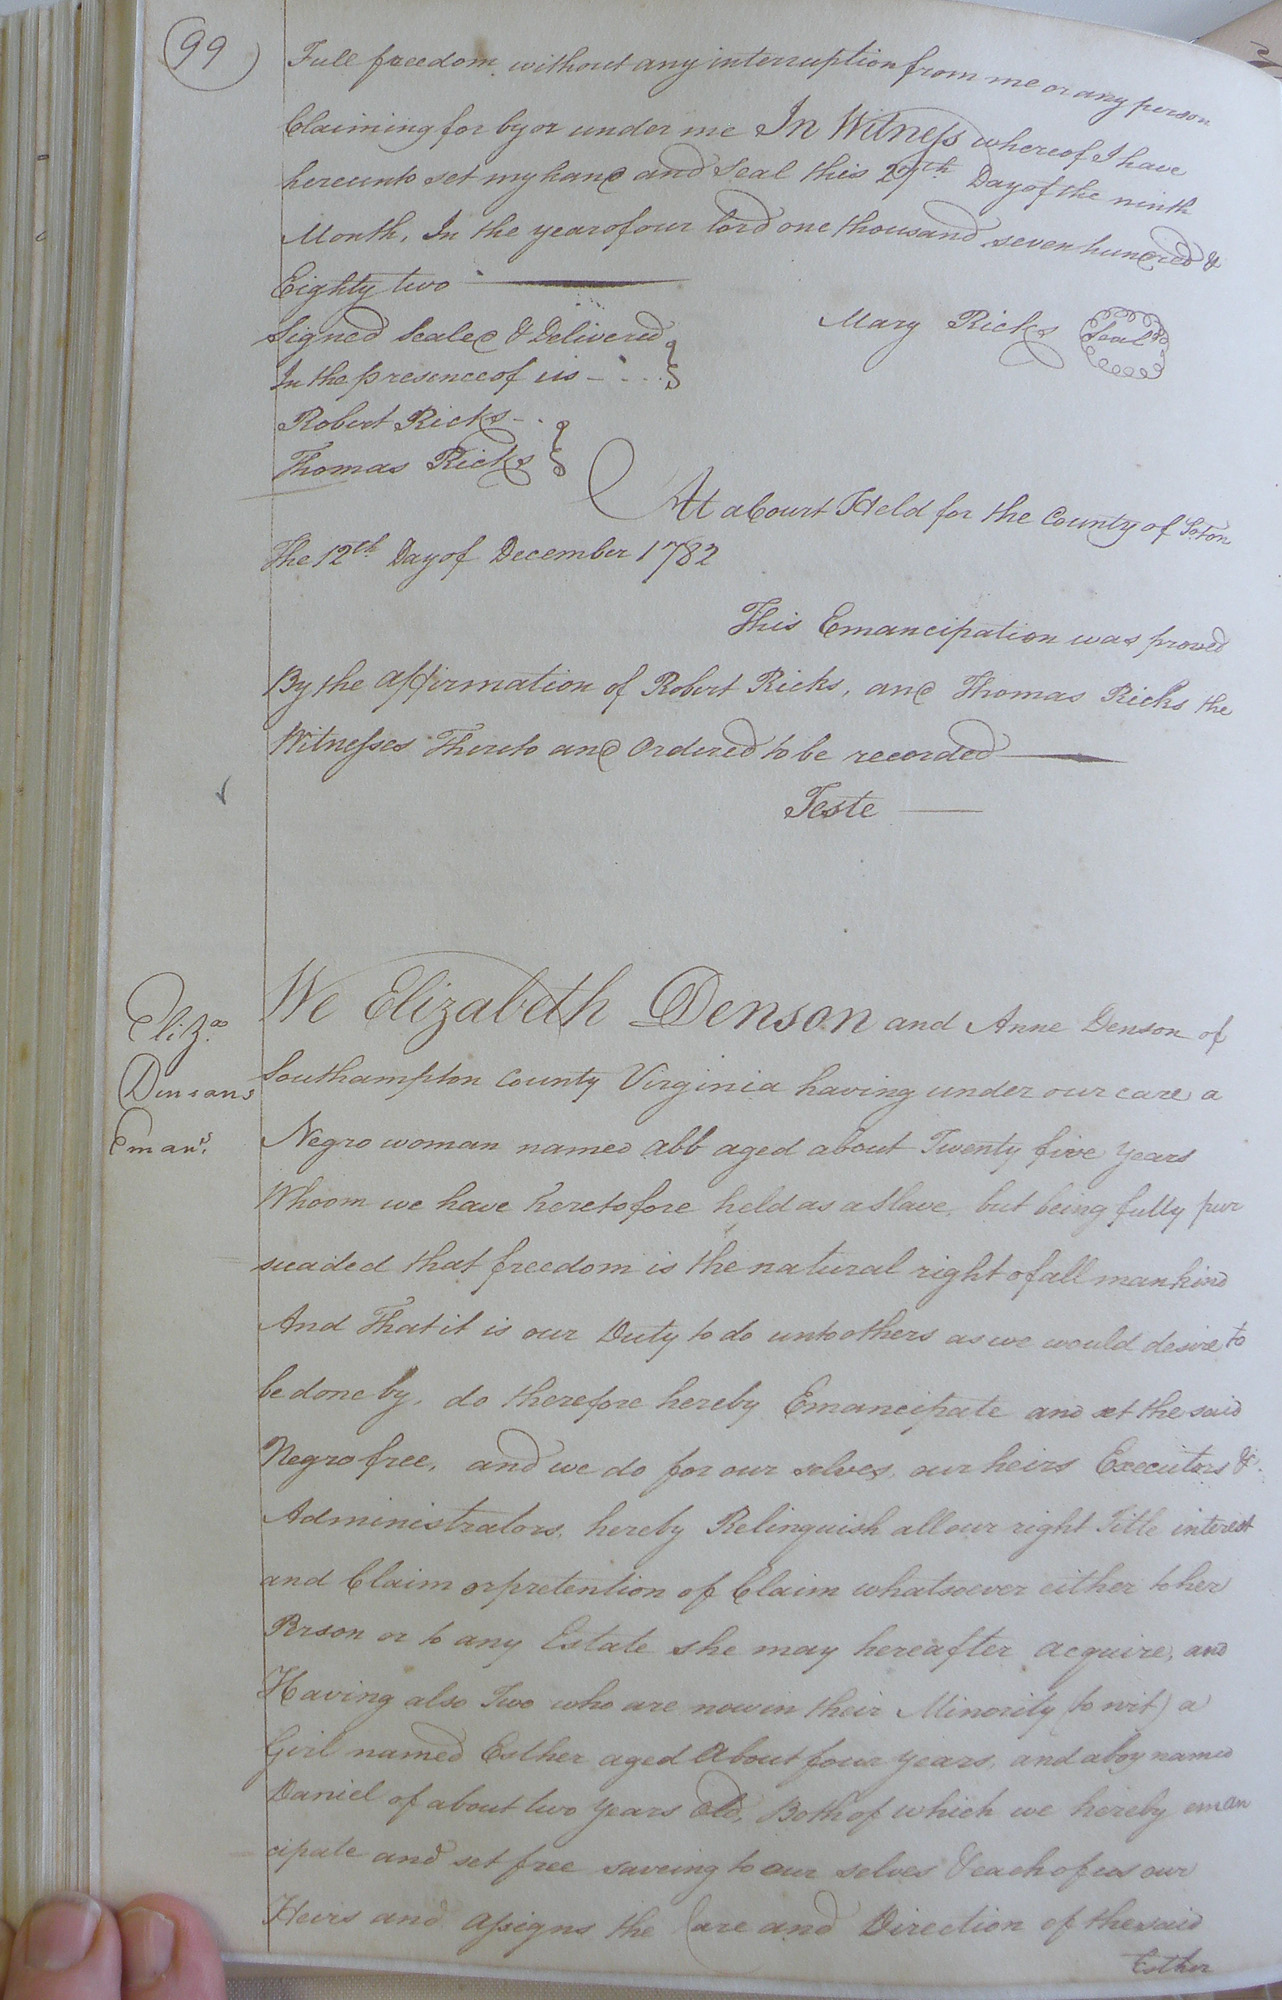 99
Full freedom without any interruption from me or any person
Claiming for by or under me In Witness whereof I have
hereunto set my hand and Seal this 27th Day of the ninth
Month, In the year of our lord one thousand seven hundred &
Eighty two
Signed Sealed & Delivered
Mary Ricks Seal
In the presence of us
Robert Ricks
Thomas Ricks
At a Court Held for the County of Soton
The 12th Day of December 1782
This Emancipation was proved
By the affirmation of Robert Ricks, and Thomas Ricks the
Witnesses Thereto and Ordered to be recorded
Teste
Eliza
Densons
Eman.s
We Elizabeth Denson and Anne Denson of
Southampton County Virginia having under our care a
Negro woman named abb aged about Twenty five years
Whoom we have heretofore held as a slave, but being fully pur
suaded that freedom is the natural right of all mankind
And That it is our Duty to do unto others as we would desire to
be done by, do therefore hereby Emancipate and set the said
Negro free, and we do for our selves, our heirs Executors &
Administrators, hereby Relinquish all our right Title interest
and Claim or pretention of Claim whatsoever either to her
Person or to any Estate she may hereafter acquire, and
Having also Two who are now in their Minority (to wit) a
Girl named Esther aged About four years, and a boy named
Daniel of about two years old, Both of which we hereby eman
cipate and set free saveing to our selves & each of us our
Heirs and Assigns the Care and Direction of the said
Esther